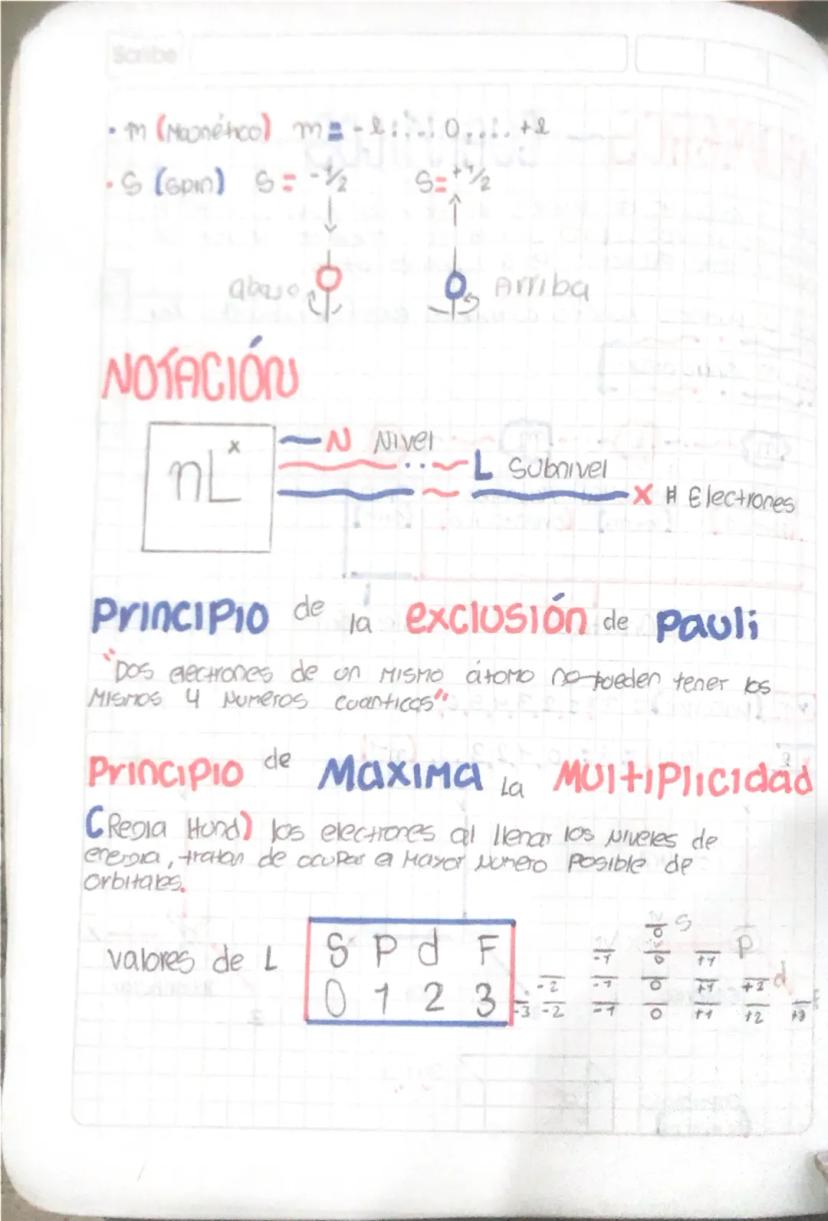 Scribe
• m (Magnético) m = -l ; ... ; 0 , ... ; +l
• S (Spin) S = -1/2 S = +1/2
abajo Arriba
NOTACIÓN
nL^x
N Nivel
L Subnivel
X # Electrones
Principio de la exclusión de Pauli
"Dos electrones de un mismo átomo no pueden tener los
mismos 4 numeros cuanticos"
Principio de Maxima La Multiplicidad
(Regla Hund) los electrones al llenar los niveles de
energia, tratan de ocupar el mayor numero posible de
orbitales.
valores de L
S P d F
0 1 2 3
0 S
-1 0 +1 P
-2 -1 0 +1 +2 d
-3 -2 -1 0 +1 +2 +3 F